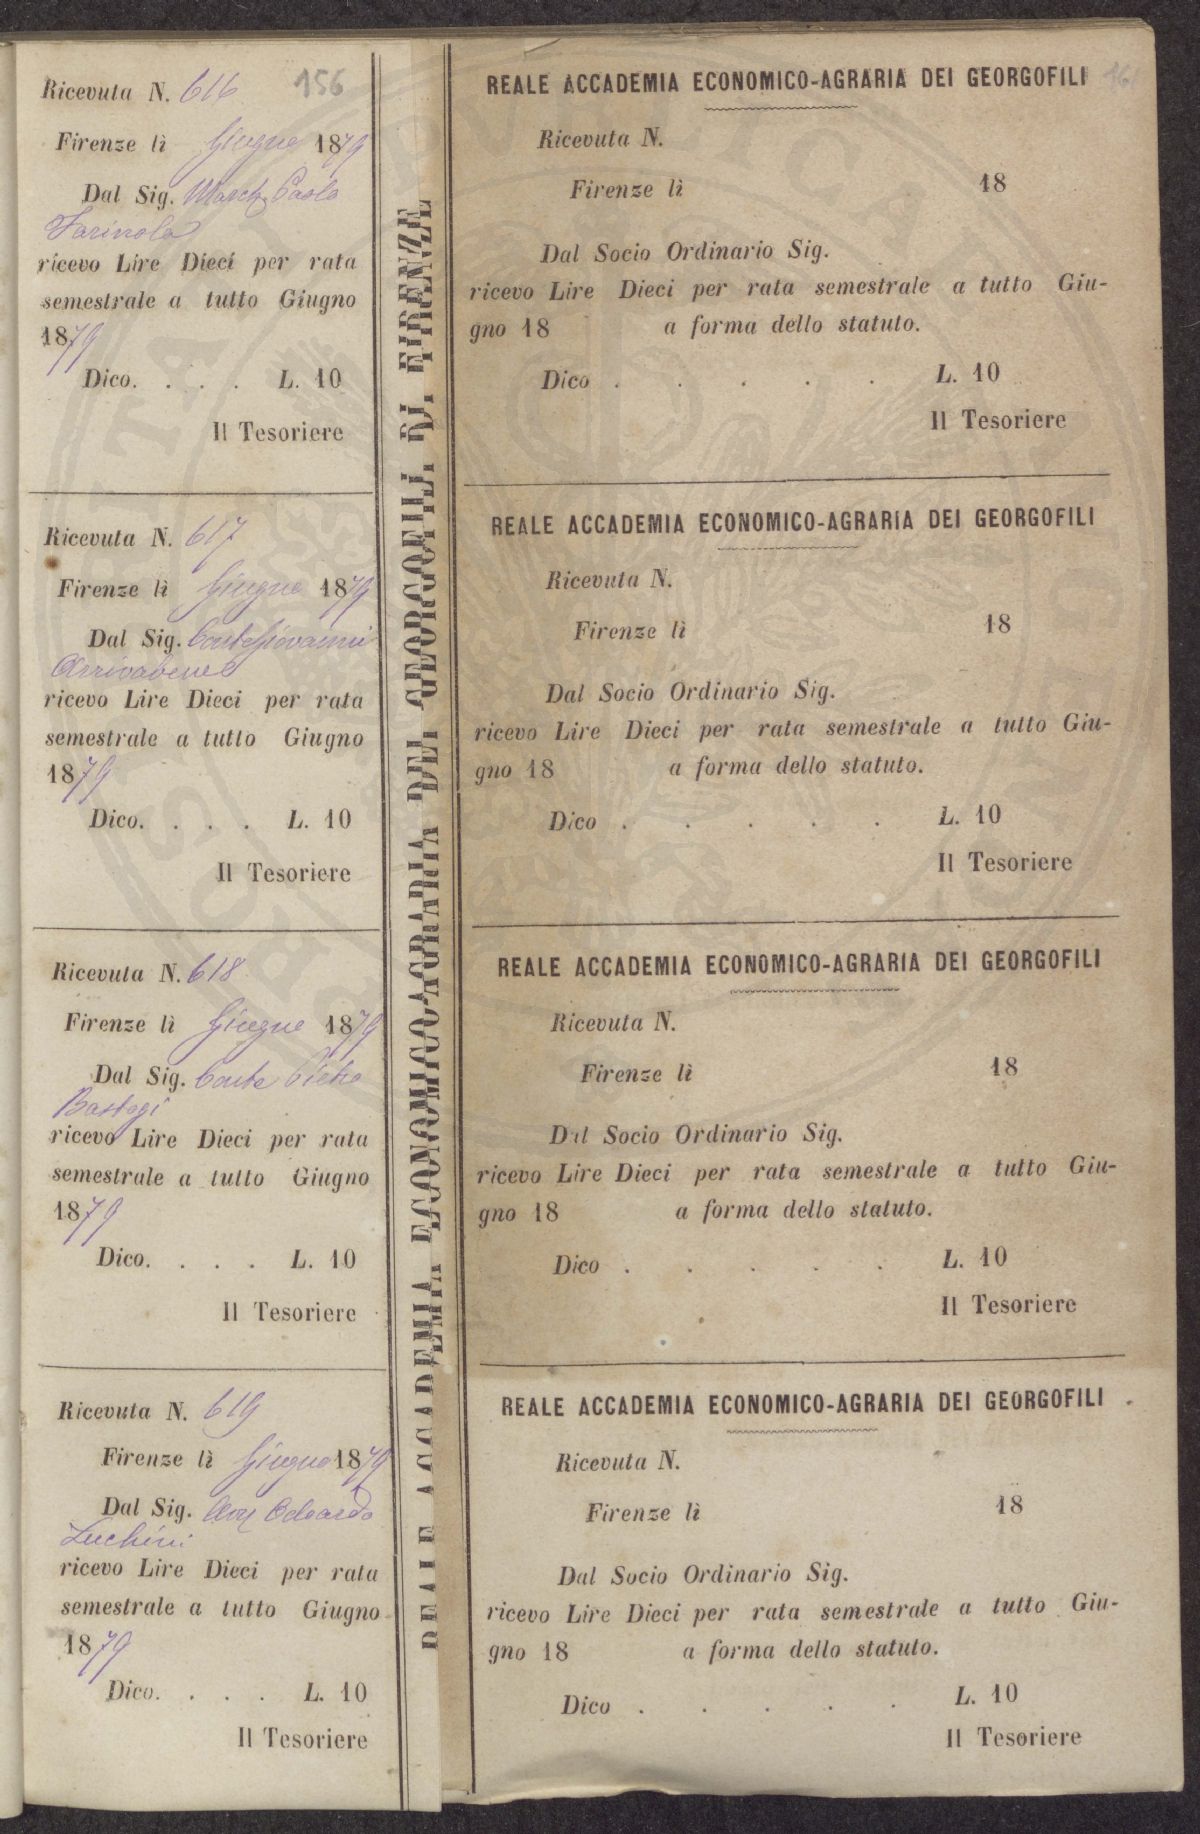 Ricevuta N. 616 156
Firenze lì Giugno 1879
Dal Sig. March. Paolo
Farinola
ricevo Lire Dieci per rata
semestrale a tutto Giugno
1879
Dico. . . . L. 10
Il Tesoriere
Ricevuta N. 617
Firenze lì Giugno 1879
Dal Sig. Conte Giovanni
Arrivabene
ricevo Lire Dieci per rata
semestrale a tutto Giugno
1879
Dico. . . . L. 10
Il Tesoriere
Ricevuta N. 618
Firenze lì Giugno 1879
Dal Sig. Conte Pietro
Bastogi
ricevo Lire Dieci per rata
semestrale a tutto Giugno
1879
Dico. . . . L. 10
Il Tesoriere
Ricevuta N. 619
Firenze lì Giugno 1879
Dal Sig. Avv Odoardo
Luchini
ricevo Lire Dieci per rata
semestrale a tutto Giugno
1879
Dico. . . . L. 10
Il Tesoriere
REALE ACCADEMIA ECONOMICO-AGRARIA DEI GEORGOFILI DI FIRENZE
REALE ACCADEMIA ECONOMICO-AGRARIA DEI GEORGOFILI
Ricevuta N.
Firenze lì 18
Dal Socio Ordinario Sig.
ricevo Lire Dieci per rata semestrale a tutto Giu-
gno 18 a forma dello statuto.
Dico . . . . . L. 10
Il Tesoriere
REALE ACCADEMIA ECONOMICO-AGRARIA DEI GEORGOFILI
Ricevuta N.
Firenze lì 18
Dal Socio Ordinario Sig.
ricevo Lire Dieci per rata semestrale a tutto Giu-
gno 18 a forma dello statuto.
Dico . . . . . L. 10
Il Tesoriere
REALE ACCADEMIA ECONOMICO-AGRARIA DEI GEORGOFILI
Ricevuta N.
Firenze lì 18
Dal Socio Ordinario Sig.
ricevo Lire Dieci per rata semestrale a tutto Giu-
gno 18 a forma dello statuto.
Dico . . . . . L. 10
Il Tesoriere
REALE ACCADEMIA ECONOMICO-AGRARIA DEI GEORGOFILI
Ricevuta N.
Firenze lì 18
Dal Socio Ordinario Sig.
ricevo Lire Dieci per rata semestrale a tutto Giu-
gno 18 a forma dello statuto.
Dico . . . . . L. 10
Il Tesoriere